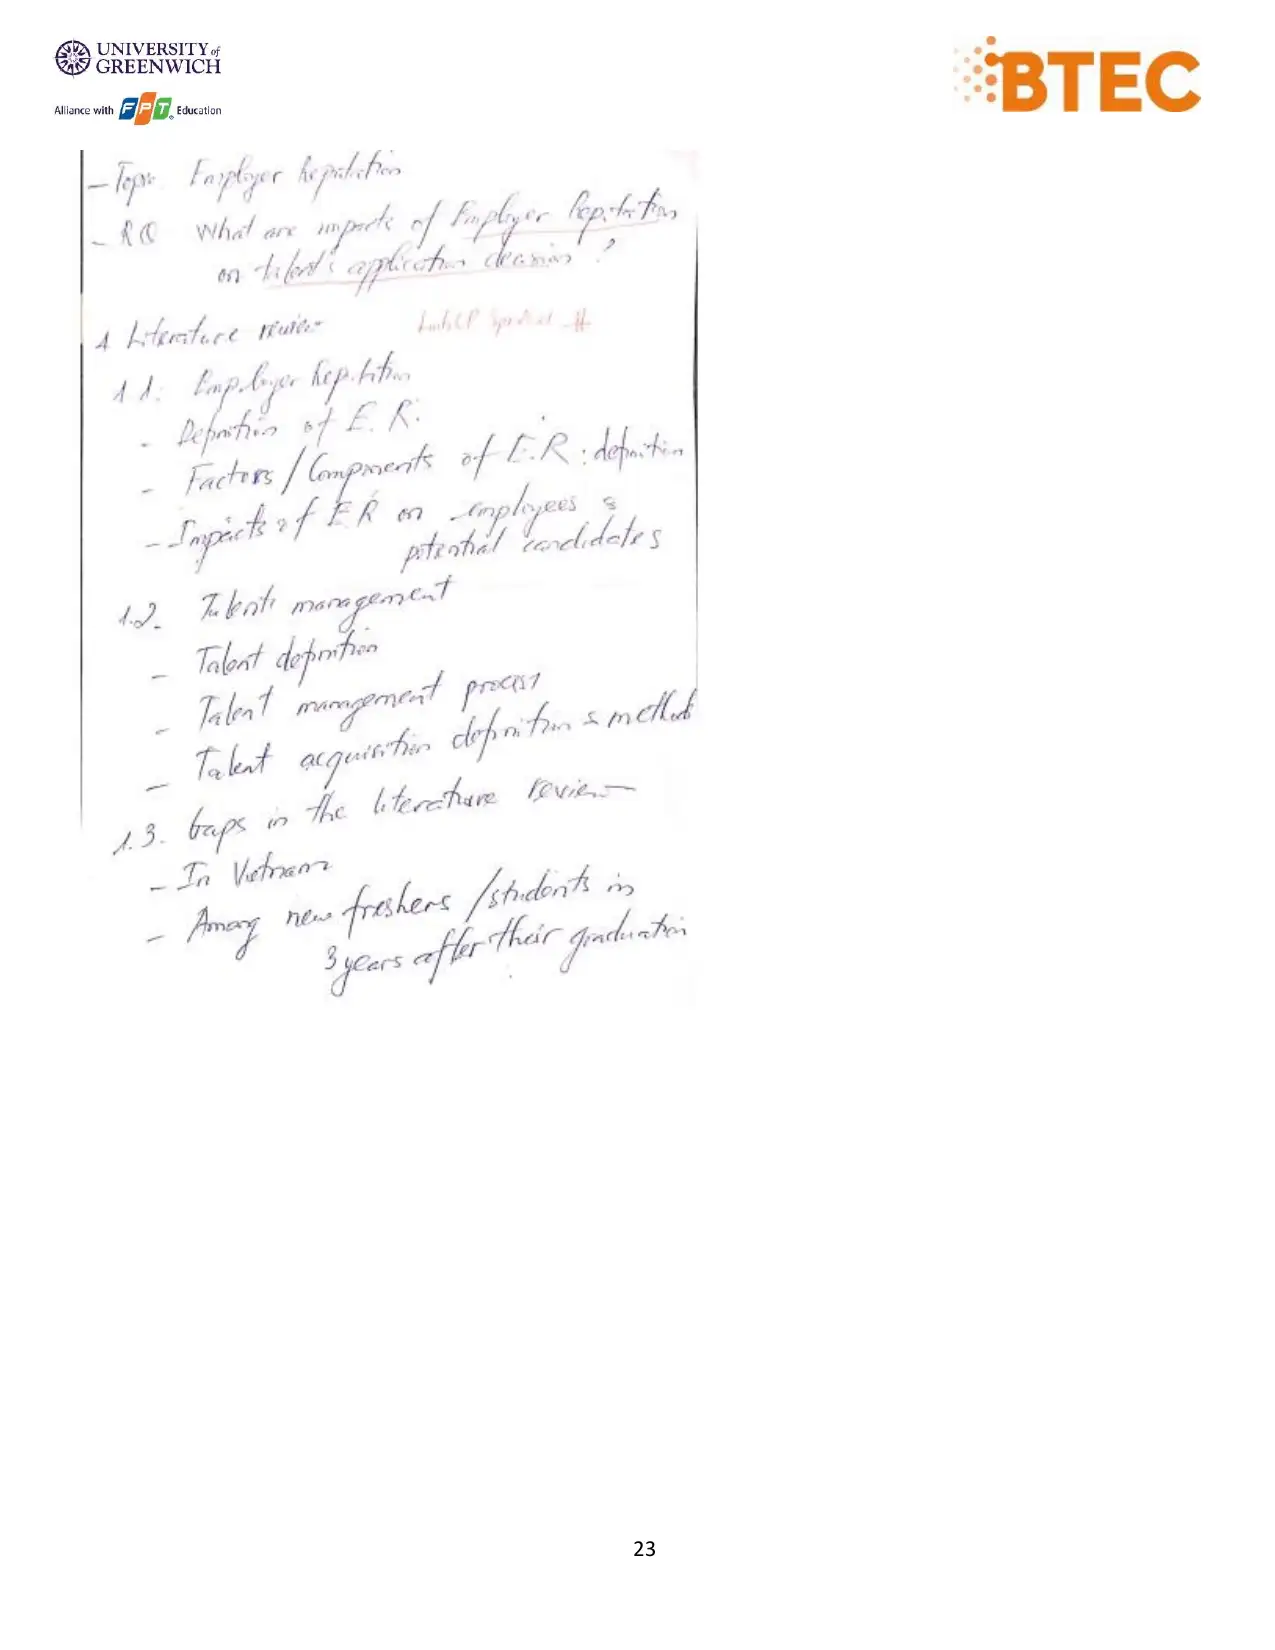 UNIVERSITY of
GREENWICH
Alliance with FPT Education
BTEC
- Topic Employer Reputation
- RQ What are impacts of Employer Reputation
on talent's application decision ?
1 Literature review
1.1: Employer Reputation
- Definition of E.R:
- Factors / Components of E.R: definition
- Impacts of E.R on employees &
potential candidates
1.2. Talents management
- Talent definition
- Talent management process
- Talent acquisition definition & methods
1.3. Gaps in the literature review
- In Vietnam
- Among new freshers / students in
3 years after their graduation
23